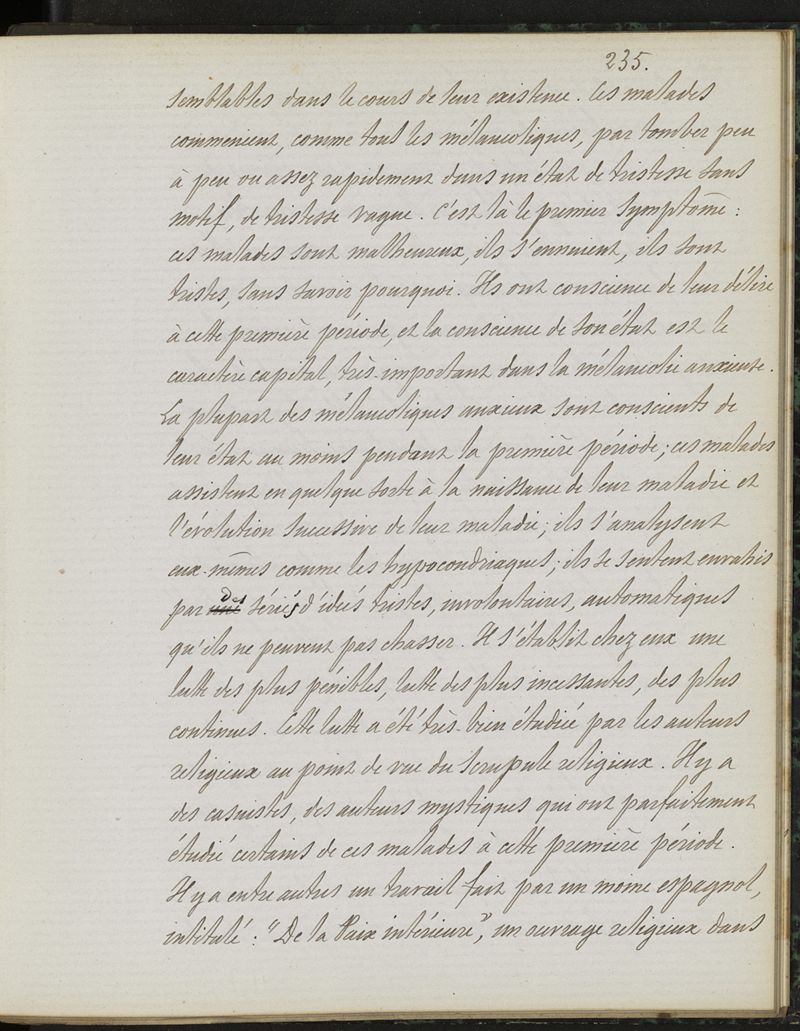 235.
semblables dans le cours de leur existence. Ces malades
commencent, comme tous les mélancoliques, par tomber peu
à peu ou assez rapidement dans un état de tristesse sans
motif, de tristesse vague. C'est là le premier symptôme :
ces malades sont malheureux, ils s'ennuient, ils sont
tristes, sans savoir pourquoi. Ils ont conscience de leur délire
à cette première période, et la conscience de son état est le
caractère capital, très-important dans la mélancolie anxieuse.
La plupart des mélancoliques anxieux sont conscients de
leur état au moins pendant la première période ; ces malades
assistent en quelque sorte à la naissance de leur maladie et
l'évolution successive de leur maladie ; ils s'analysent
eux-mêmes comme les hypocondriaques ; ils se sentent envahis
par une des séries d'idées tristes, involontaires, automatiques
qu'ils ne peuvent pas chasser. Il s'établit chez eux une
lutte des plus pénibles, lutte des plus incessantes, des plus
continues. Cette lutte a été très-bien étudiée par les auteurs
religieux au point de vue du scrupule religieux. Il y a
des casuistes, des auteurs mystiques qui ont parfaitement
étudié certains de ces malades à cette première période.
Il y a entre autres un travail fait par un moine espagnol,
intitulé : "De la Paix intérieure", un ouvrage religieux dans